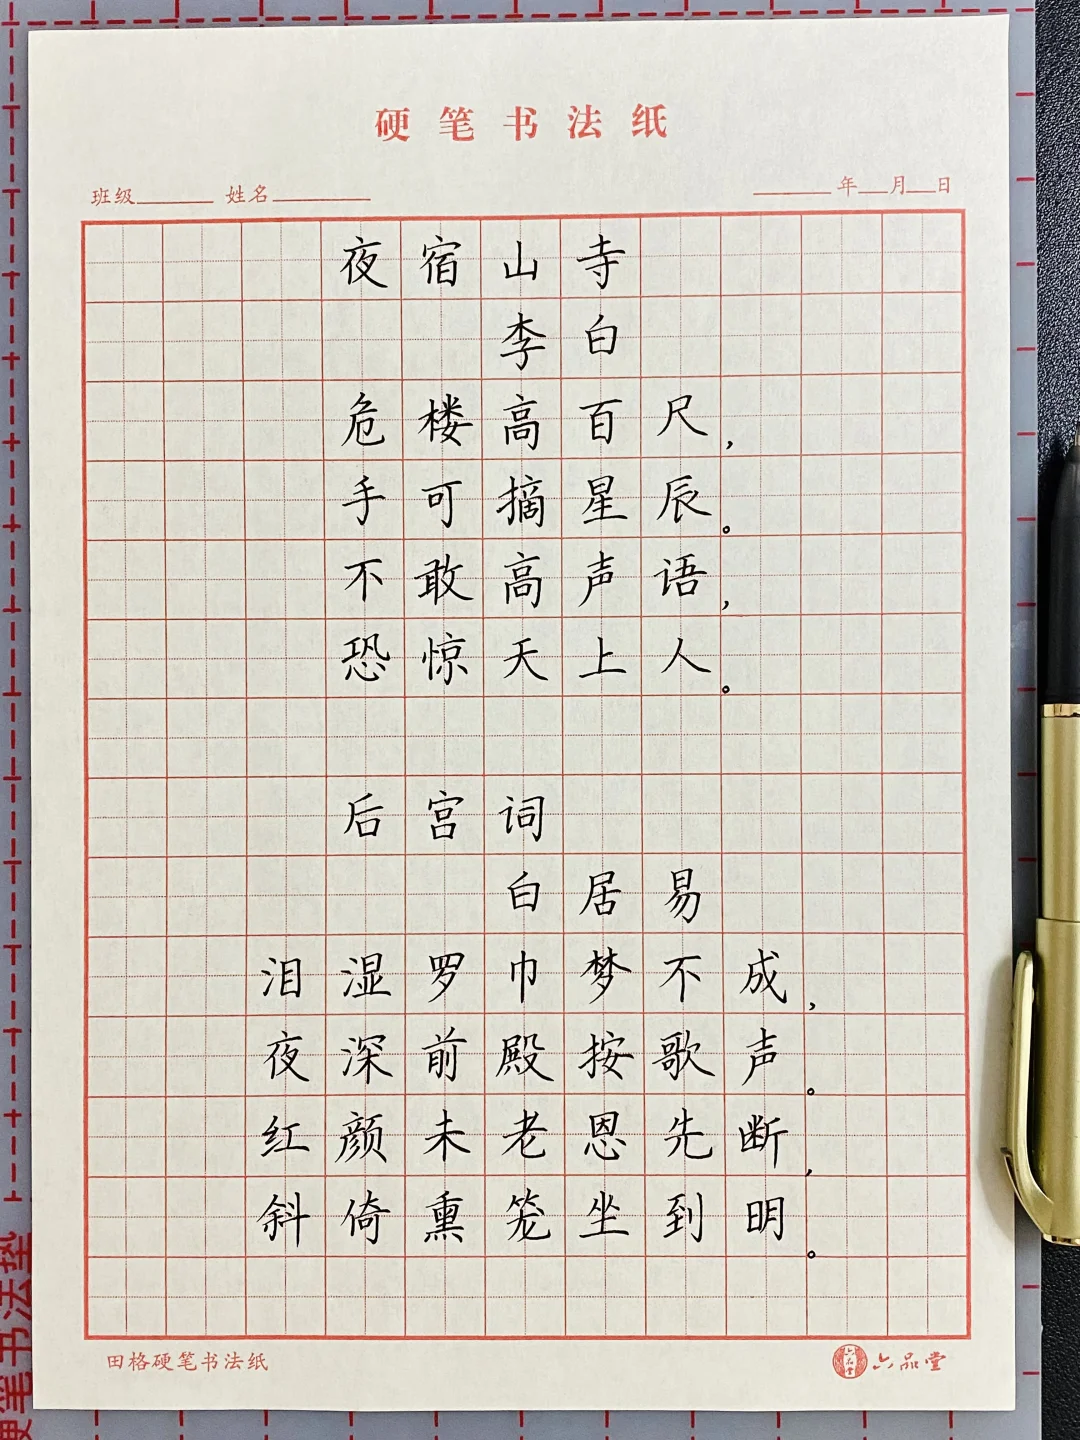 硬笔书法纸
班级 姓名 年 月 日
夜宿山寺
李白
危楼高百尺,
手可摘星辰。
不敢高声语,
恐惊天上人。
后宫词
白居易
泪湿罗巾梦不成,
夜深前殿按歌声。
红颜未老恩先断,
斜倚熏笼坐到明。
田格硬笔书法纸
六品堂 六品堂
硬笔书法垫